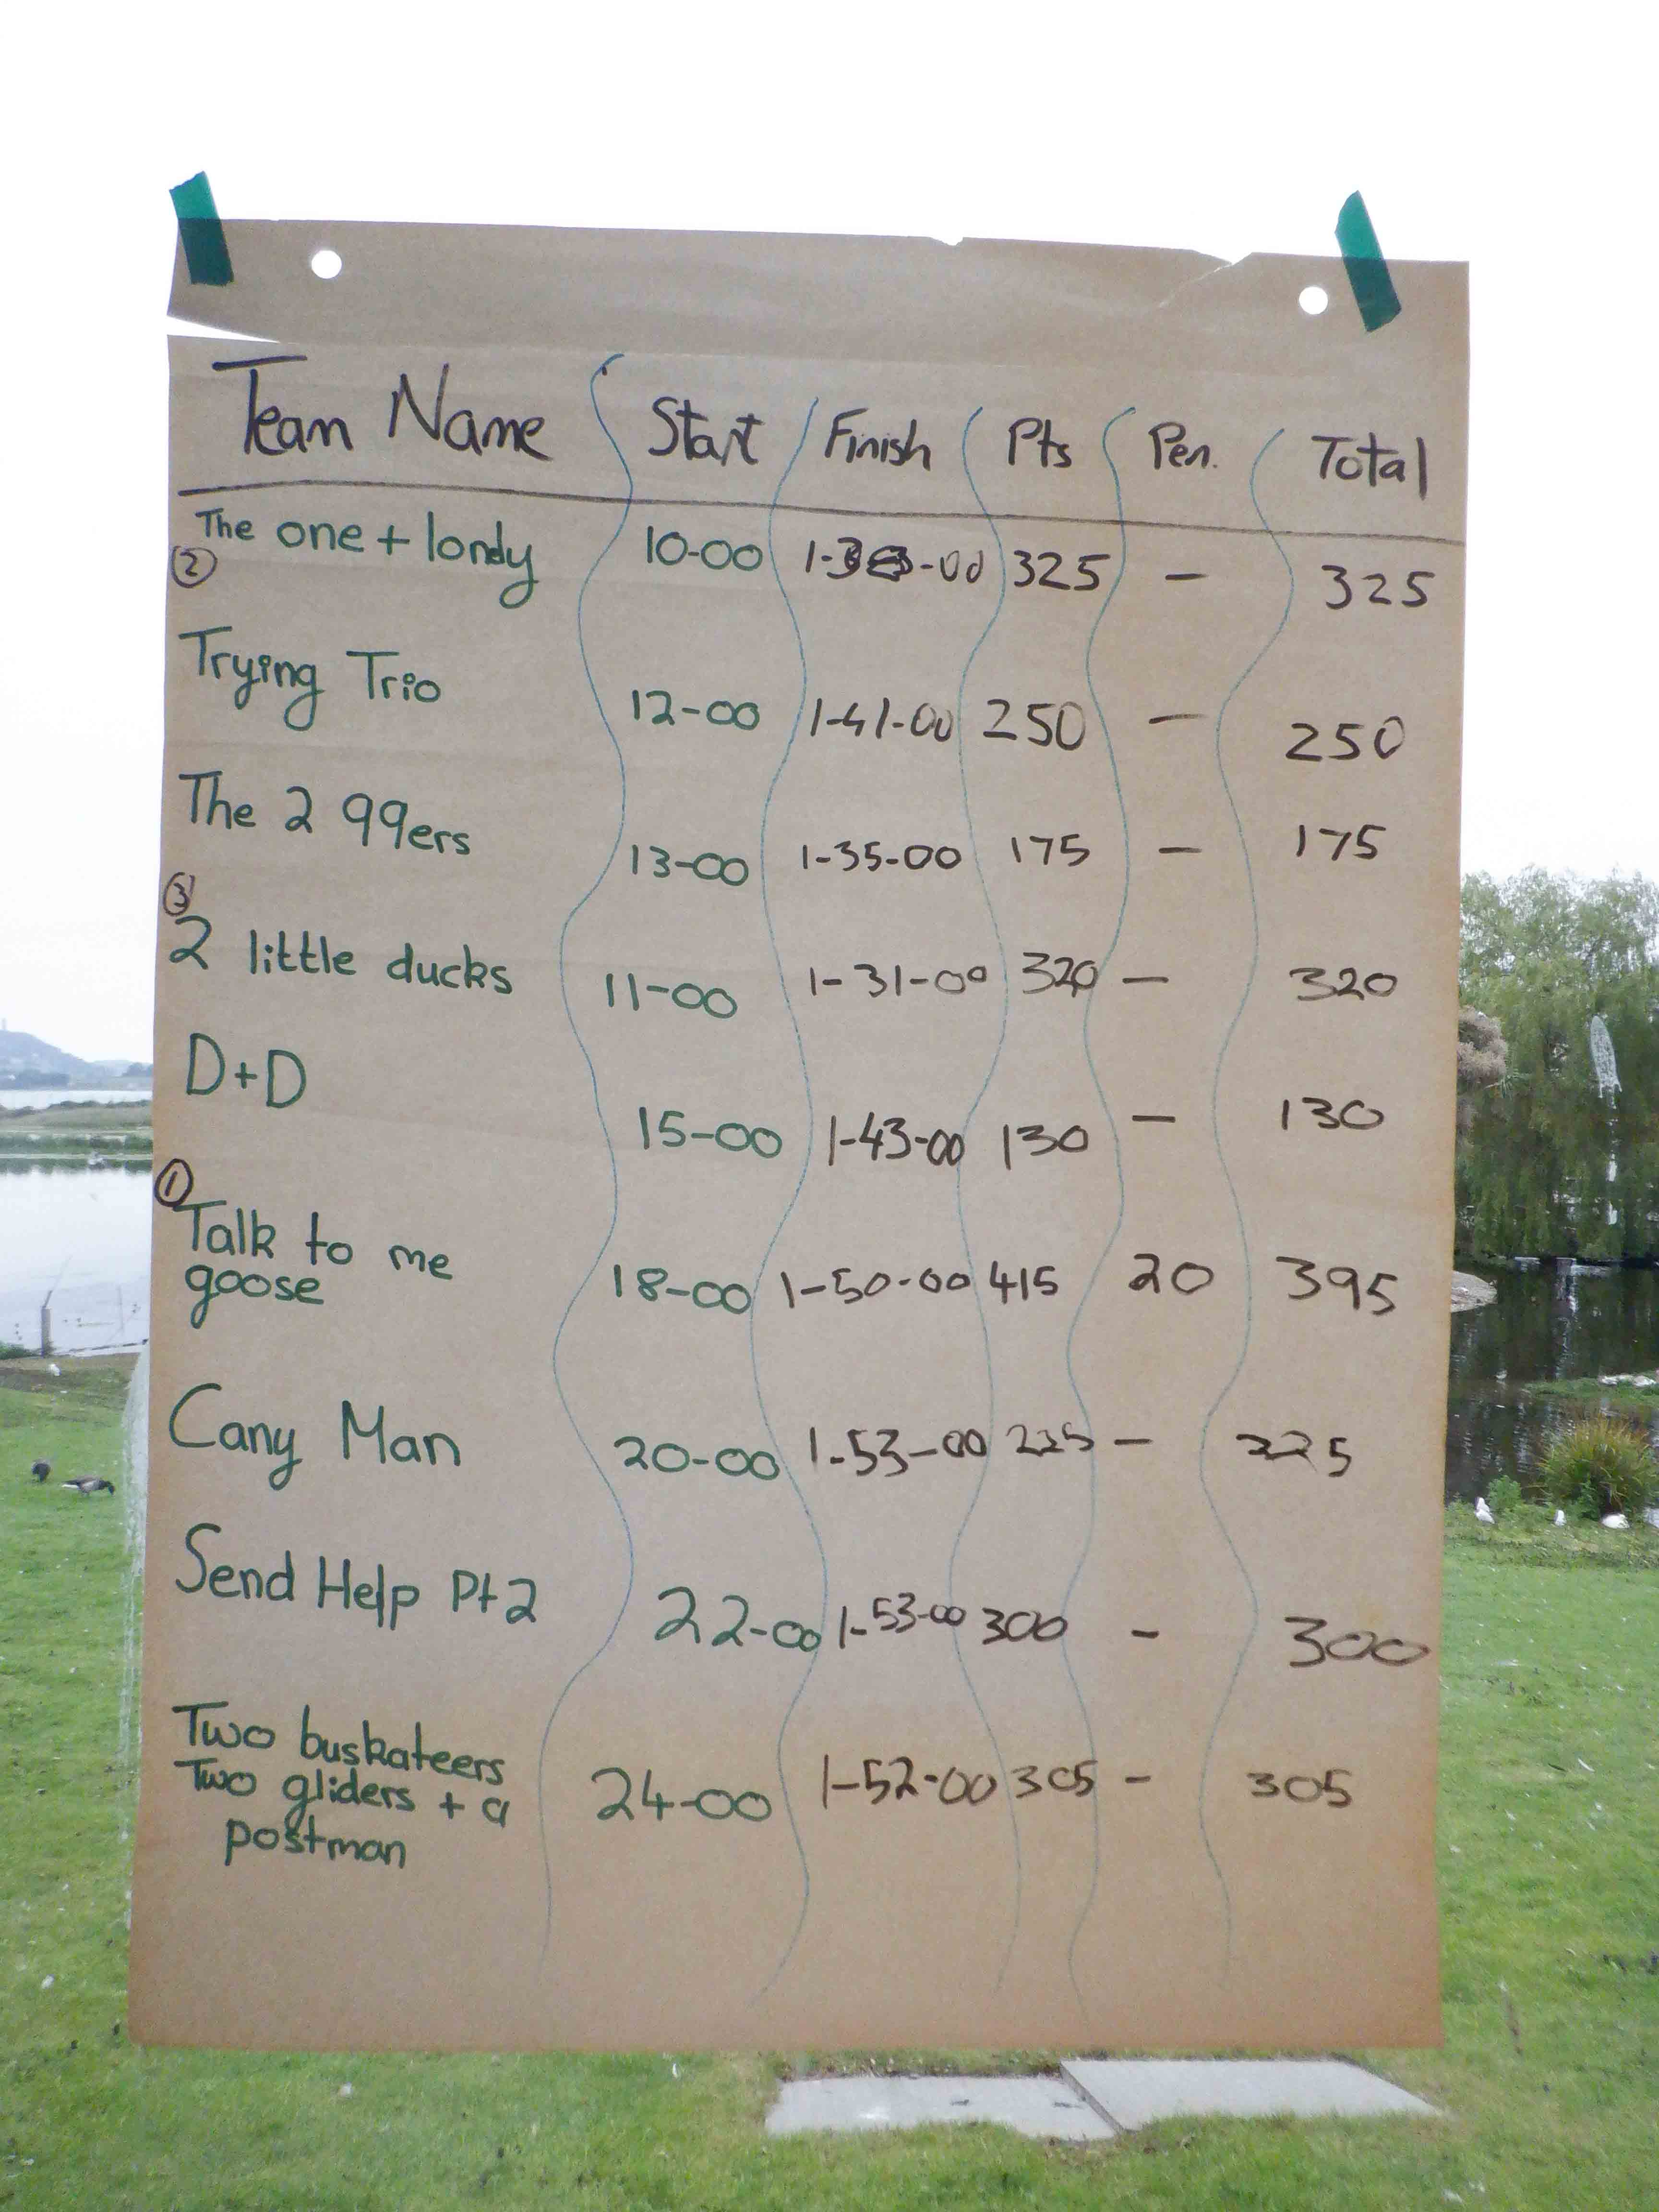 Team Name Start Finish Pts Pen. Total
The one + lordy 10-00 -00 325 — 325
②
Trying Trio 12-00 1-41-00 250 — 250
The 2 99ers 13-00 1-35-00 175 — 175
③
2 little ducks 11-00 1-31-00 320 — 320
D+D 15-00 1-43-00 130 — 130
①
Talk to me
goose 18-00 1-50-00 415 20 395
Cany Man 20-00 1-53-00 225 — 225
Send Help Pt2 22-00 1-53-00 300 - 300
Two buskateers
Two gliders + a 24-00 1-52-00 305 - 305
postman